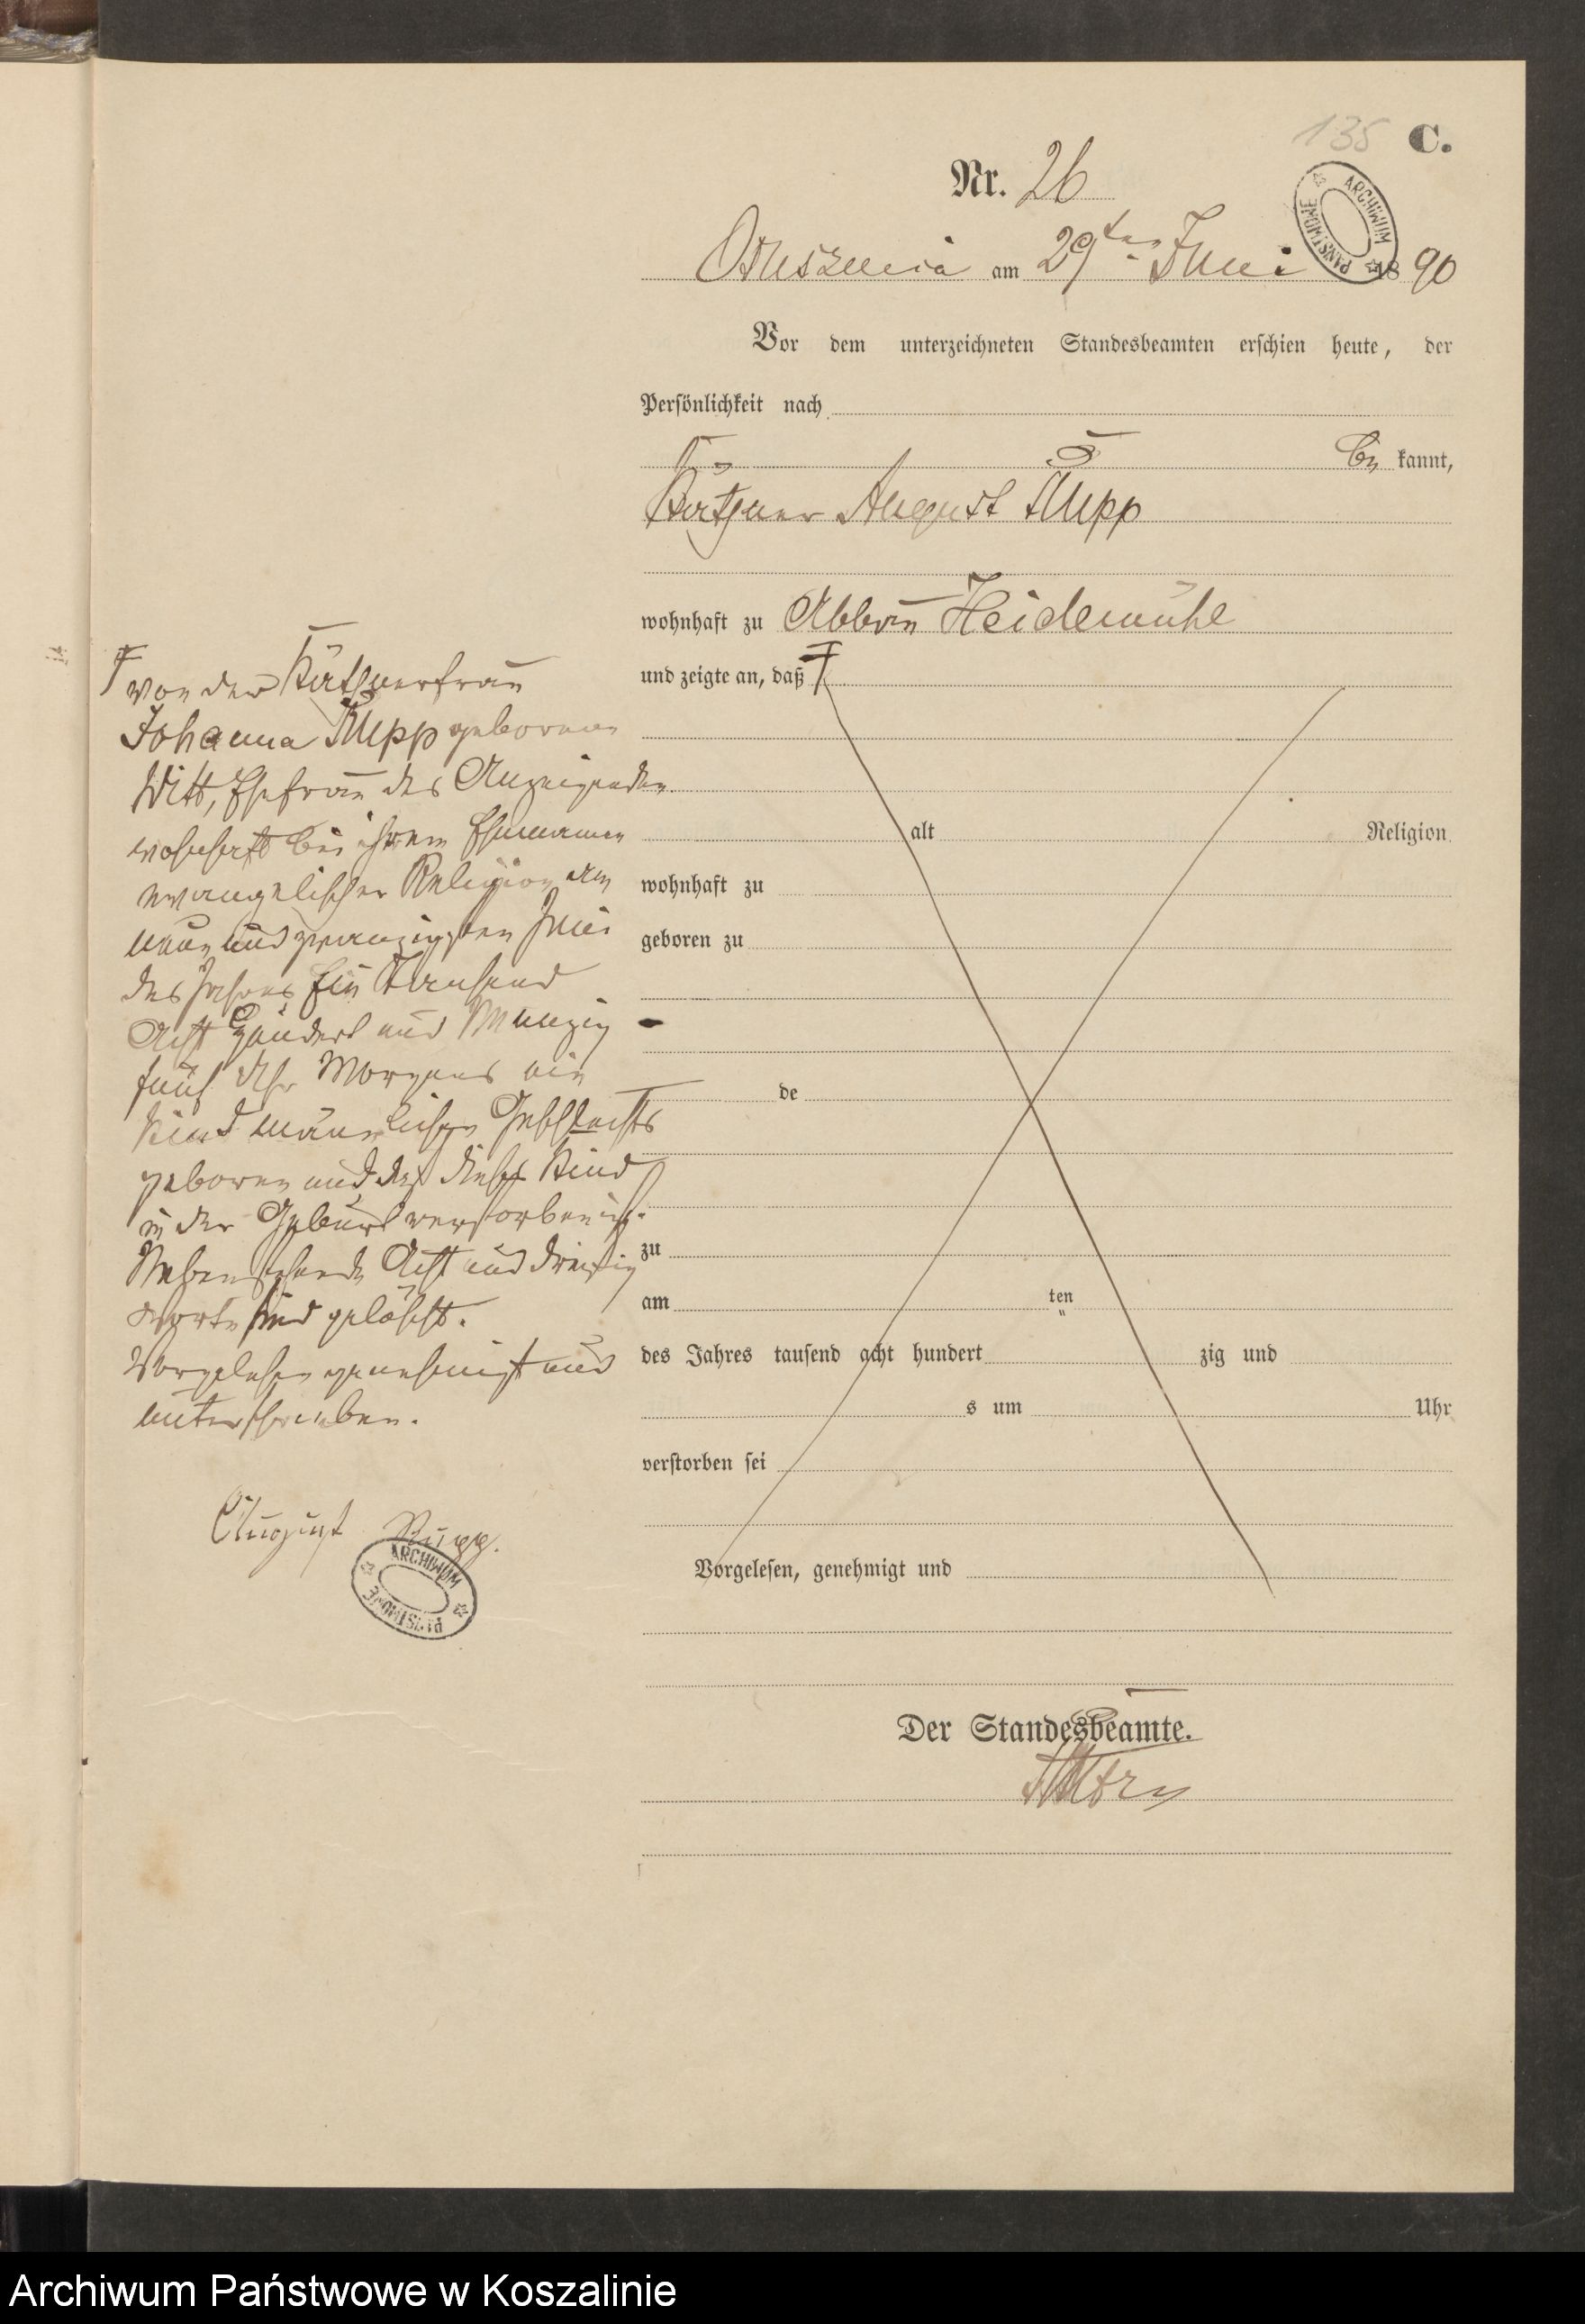 135 C.
Nr. 26
am 29ten Juni 1890
ARCHIWUM PAŃSTWOWE
Vor dem unterzeichneten Standesbeamten erschien heute, der
Persönlichkeit nach
be kannt,
Käthner August Rupp
wohnhaft zu Abbau Heidemühl
und zeigte an, daß
alt Religion
wohnhaft zu
geboren zu
de
zu
am ten
des Jahres tausend acht hundert zig und
s um Uhr
verstorben sei
Vorgelesen, genehmigt und
Der Standesbeamte.
von der Käthnerfrau
Johanna Rupp geborene
Witt, Ehefrau des Anzeigenden
wohnhaft bei ihrem Ehemanne
evangelischer Religion am
neun und zwanzigsten Juni
des Jahres Ein Tausend
Acht Hundert und Neunzig
fünf Uhr Morgens ein
Kind männlichen Geschlechts
geboren und daß dieses Kind
in der Geburt verstorben ist.
Nebenstehende Acht und dreißig
Worte sind gelöscht.
Vorgelesen genehmigt und
unterschrieben.
August Rupp.
ARCHIWUM PAŃSTWOWE
Archiwum Państwowe w Koszalinie